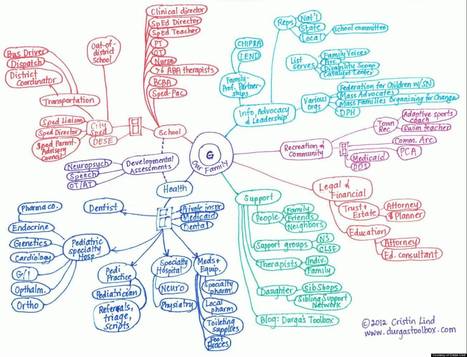 Clinical director
SpEd Director
SpEd Teacher
PT
OT
Nurse
ABA therapists
BCBA
Sped-Pac
Out-of-
district
School
Bus Driver
Dispatch
District
Coordinator
Transportation
Sped Liaison
Sped Director
Sped Parent
Advisory
Council
City
Sped
DESE
School
CHIPRA
LEND
Family-
Prof. Partner-
ships
Reps
Nat'l
State
Local
School committee
List
Serves
Family Voices
Arc
Disability Scoop
Catalyst Center
Info, Advocacy
& Leadership
Various
orgs
Federation for Children w/SN
Mass Advocates
Mass Families Organizing for Change
DPH
Town
Rec.
Adaptive sports
coach
Swim teacher
Recreation &
Community
Comm. Arc.
Medicaid
PCA
DDS
Neuropsych
Speech
OT/AT
Developmental
Assessments
G
Our Family
Health
Legal &
Financial
Trust &
Estate
Attorney
Planner
Education
Attorney
Ed. consultant
Support
People
Family
Friends
Neighbors
Support groups
NS
CLSE
Therapists
Indiv.
Family
Daughter
SibShops
Sibling Support
Network
Blog: Durga's Toolbox
Dentist
Private insur
Medicaid
Dental
Pharma co.
Endocrine
Genetics
Cardiology
G/I
Opthalm.
Ortho
Pediatric
specialty
Hosp
Pedi
Practice
Pediatrician
Referrals,
triage,
scripts
Specialty
Hospital
Neuro
Physiatry
Meds &
Equip.
Specialty
pharm
Local
pharm
Toileting
supplies
Foot
Orthoses
©2012 Cristin Lind
www.durgastoolbox.com